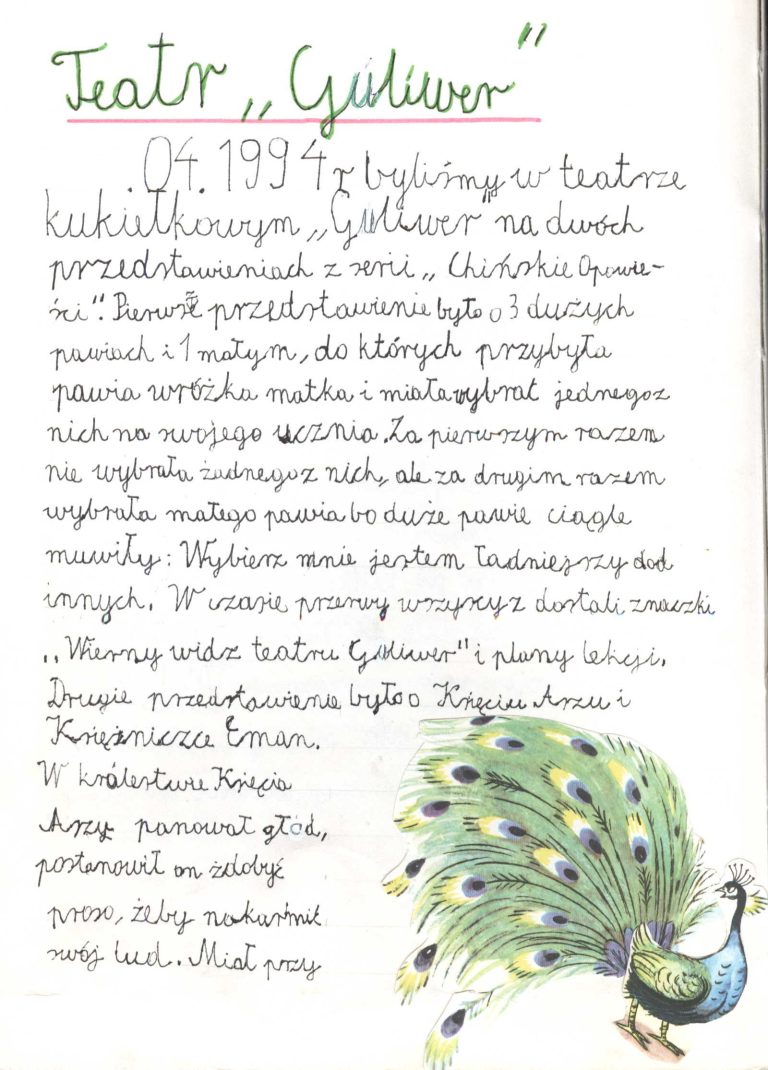 Teatr „Guliwer"
.04.1994 r byliśmy w teatrze
kukiełkowym „Guliwer" na dwóch
przedstawieniach z serii „Chińskie Opowie-
ści". Pierwsze przedstawienie było o 3 dużych
pawiach i 1 małym, do których przybyła
pawia wróżka matka i miała wybrać jednego z
nich na swojego ucznia. Za pierwszym razem
nie wybrała żadnego z nich, ale za drugim razem
wybrała małego pawia bo duże pawie ciągle
muwiły: Wybierz mnie jestem ładniejszy od
innych. W czasie przerwy wszyscy z dostali znaczki
„Wierny widz teatru Guliwer" i plany lekcji.
Drugie przedstawienie było o Księciu Arzu i
Księżniczce Eman.
W królestwie Księcia
Arzu panował głód,
postanowił on zdobyć
proso, żeby nakarmić
swój lud. Miał przy